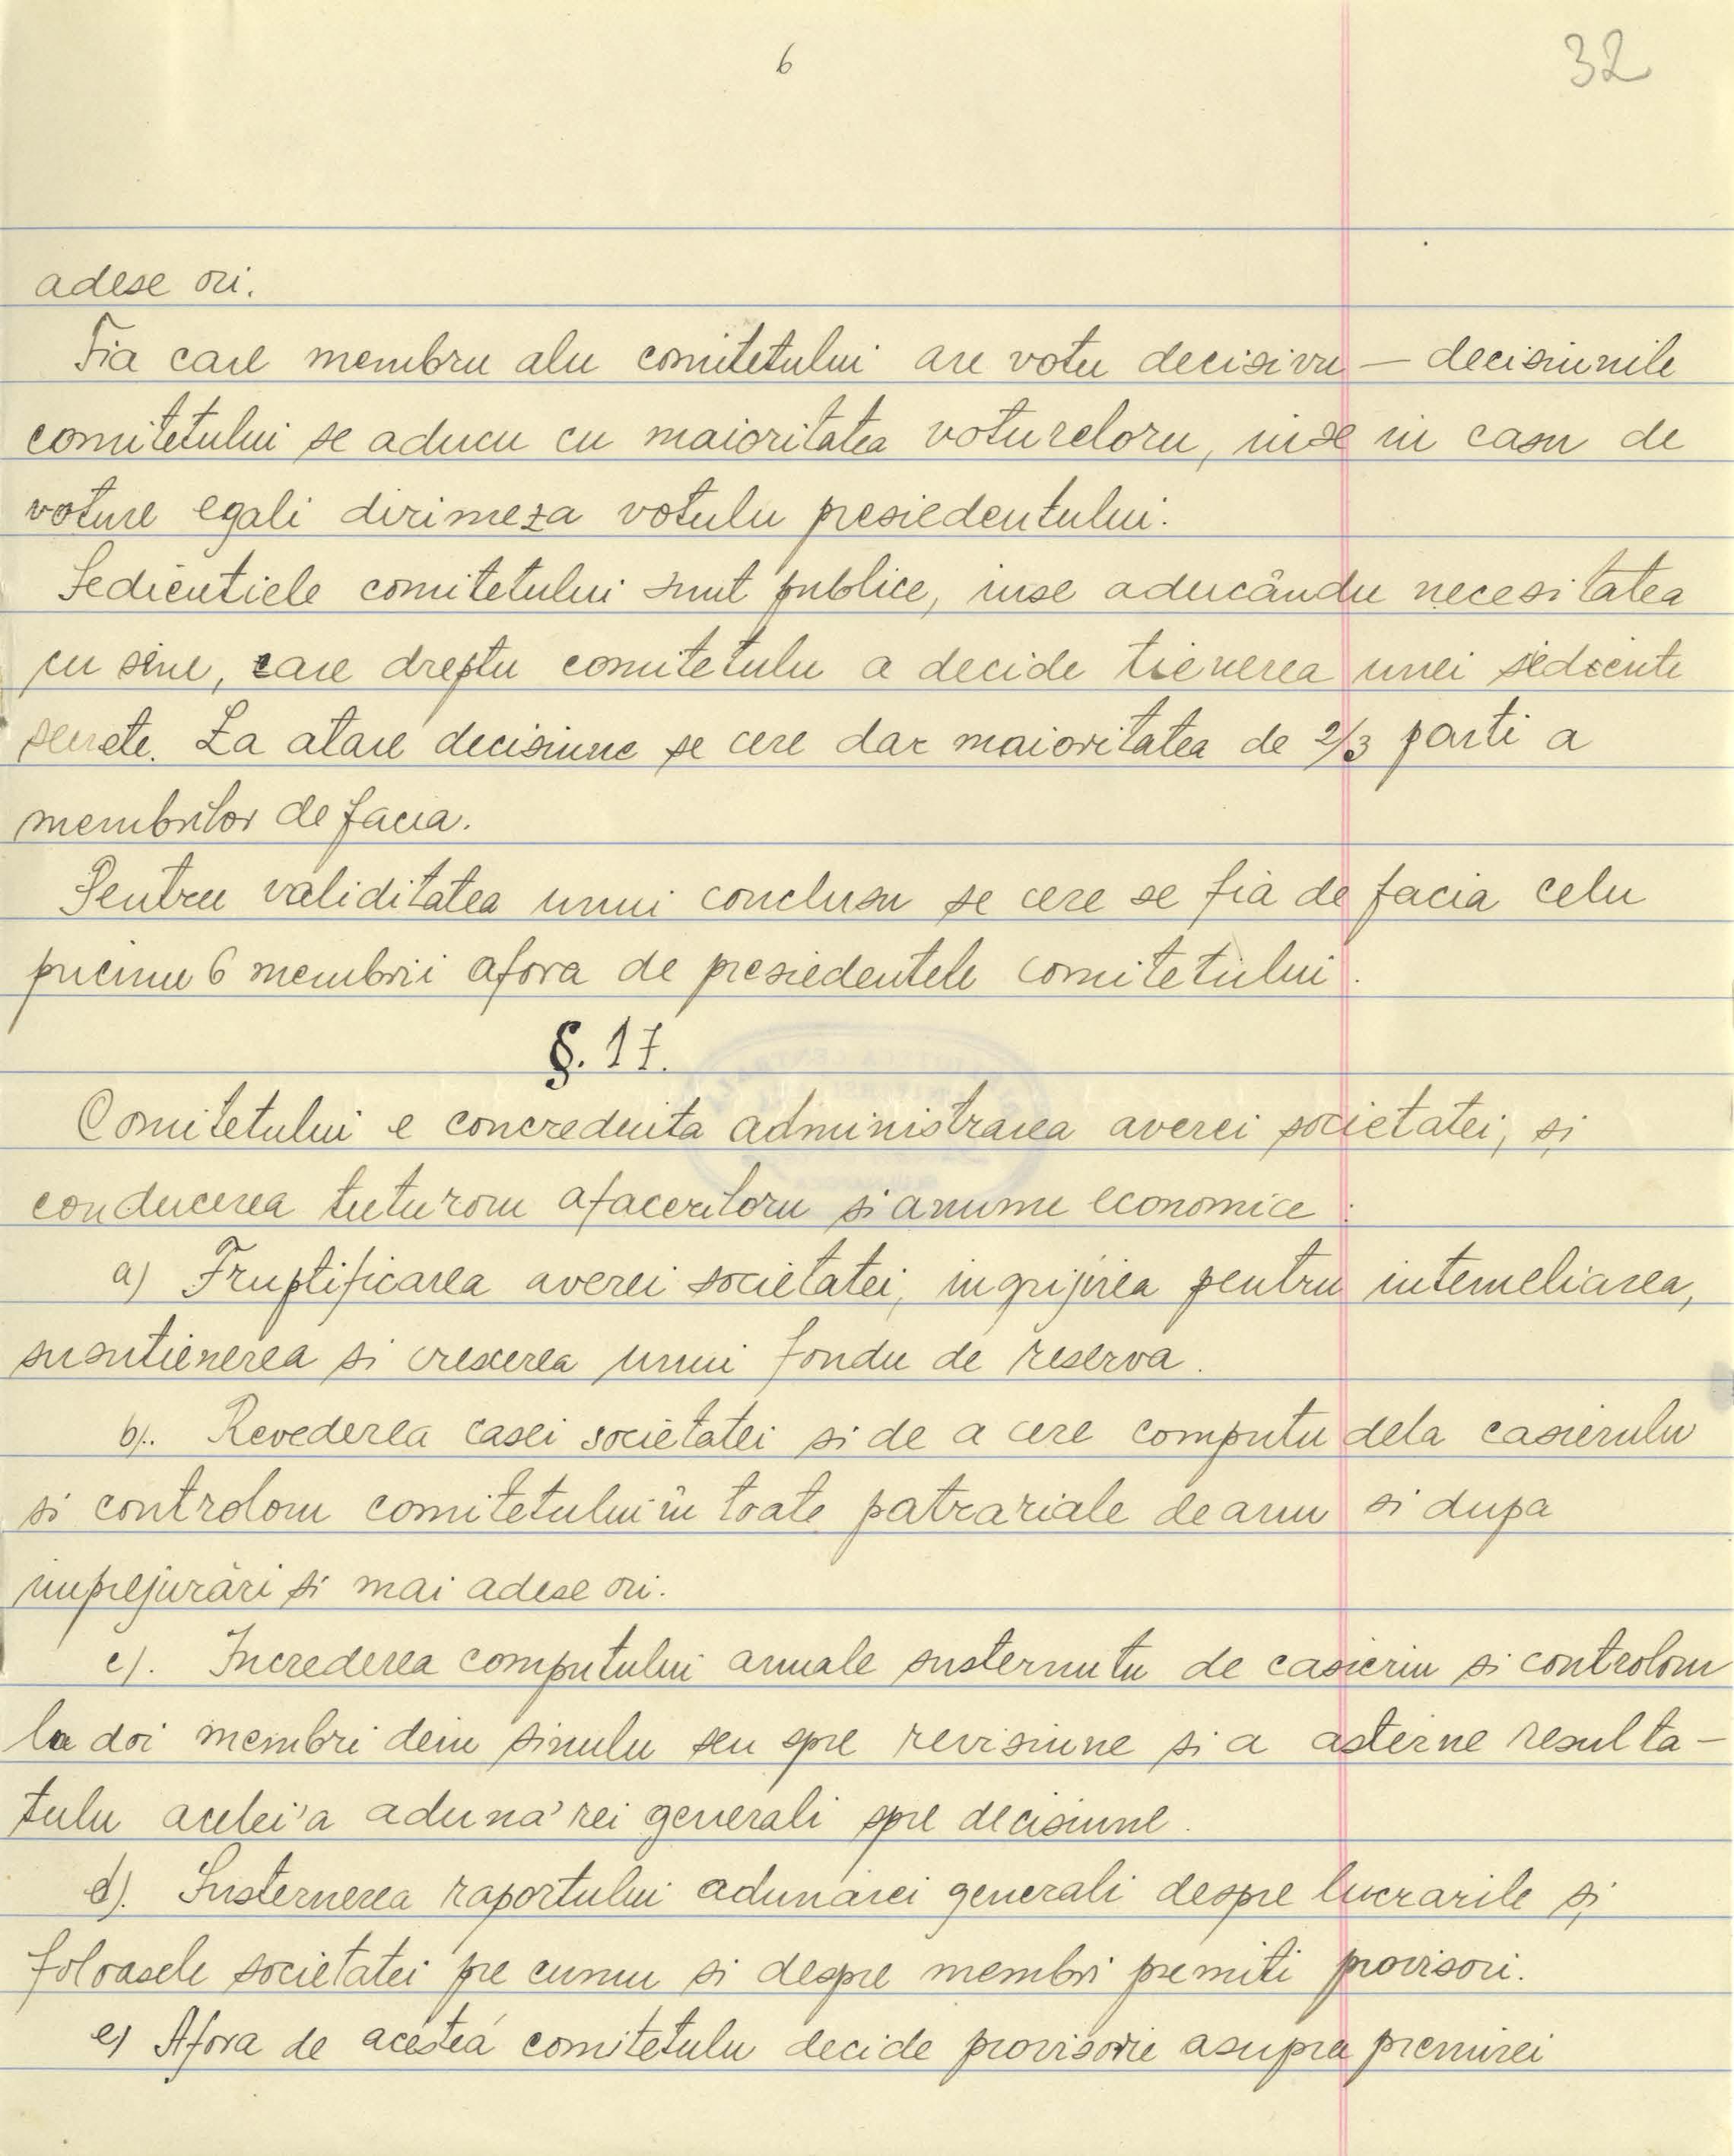 6
32
adese ori.
Fia care membru alu comitetului are votu decisivu — decisiunile
comitetului se aducu cu maioritatea votureloru, inse in casu de
voture egali dirimeza votulu presiedentului.
Sedientiele comitetului sunt publice, inse aducându necesitatea
cu sine, care dreptu comitetulu a decide tienerea unei sediente
secrete. La atare decisiune se cere dar maioritatea de 2/3 parti a
membrilor de facia.
Pentru validitatea unui conclusu se cere se fia de facia celu
pucinu 6 membrii afora de presiedentele comitetului.
§. 17.
Comitetului e concrediuta administrarea averei societatei, si
conducerea tuturoru afaceriloru si anumu economice:
a) Fruptificarea averei societatei, ingrijirea pentru intemeliarea,
susutienerea si crescerea unui fondu de reserva.
b). Revederea casei societatei si de a cere computu dela casierulu
si controloru comitetului in toate patrariale de anu si dupa
imprejurări si mai adese ori.
c). Increderea computului anuale susternutu de casieriu si controloru
la doi membri dein sinulu seu spre revisiune si a asterne resulta-
tulu acelei'a aduna'rei generali spre decisiune.
d). Susternerea raportului adunărei generali despre lucrarile si
foloasele societatei pre cumu si despre membri premiti provisori.
e) Afora de acestea comitetulu decide provisorie asupra premirei